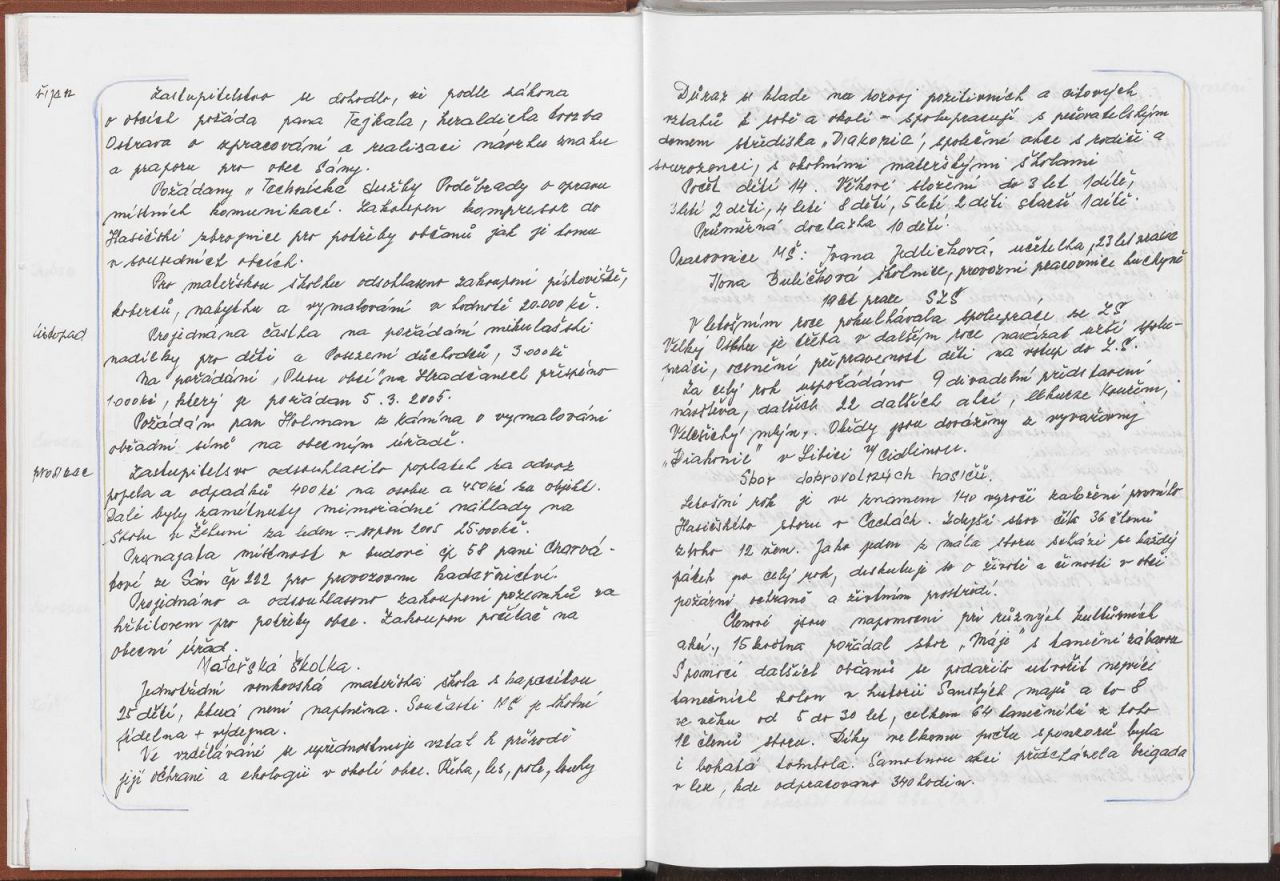 říjen
Zastupitelstvo se dohodlo, že podle zákona
o obcích požádá pana Tejkala, heraldická tvorba
Ostrava o zpracování a realizaci návrhu znaku
a praporu pro obec Sány.
Požádány "Technické služby Poděbrady o opravu
místních komunikací. Zakoupen kompresor do
Hasičské zbrojnice pro potřeby občanů jak je tomu
v sousedních obcích.
Pro mateřskou školku odsouhlaseno zakoupení pískoviště,
koberců, nábytku a vymalování v hodnotě 20.000 kč.
listopad
Projednána částka na pořádání mikulášské
nadílky pro děti a Posezení důchodců, 3000kč
Na pořádání "Plesu obcí" na Hradčanech přispěno
1000kč, který je pořádán 5. 3. 2005.
Požádán pan Holman z Kamína o vymalování
obřadní síně na obecním úřadě.
prosinec
Zastupitelstvo odsouhlasilo poplatek za odvoz
popela a odpadků 400kč na osobu a 450kč za objekt.
Dále byly zamítnuty mimořádné náklady na
školu v Žehuni za leden - srpen 2005 25000kč.
Pronajata místnost v budově čp 58 paní Chorvá-
tové ze Sán čp 222 pro provozovnu kadeřnictví.
Projednáno a odsouhlaseno zakoupení pozemků za
hřbitovem pro potřeby obce. Zakoupen počítač na
obecní úřad.
Mateřská školka.
Jednotřídní venkovská mateřská škola s kapacitou
25 dětí, která není naplněna. Součástí MŠ je školní
jídelna + výdejna.
Ve vzdělávání se upřednostňuje vztah k přírodě
její ochraně a ekologii v okolí obce. Řeka, les, pole, louky
Důraz se klade na rozvoj pozitivních a citových
vztahů k sobě a okolí - spolupracují s pečovatelským
domem střediska "Diakonie", společné akce s rodiči a
sourozenci, s okolními mateřskými školami
Počet dětí 14. Věkové složení do 3 let 1 dítě,
3letí 2 děti, 4 letí 8 dětí, 5 letí 2 děti starší 1 dítě.
Průměrná docházka 10 dětí.
Pracovnice MŠ: Ivana Jedličková, učitelka, 23 let praxe
Ilona Bulíčková školnice, provozní pracovnice kuchyně
19 let praxe SZŠ
V letošním roce pokulhávala spolupráce se ZŠ
Velký Osek je třeba v dalším roce navázat užší spolu-
práci, ocenění připravenost dětí na vstup do Z.Š.
Za celý rok uspořádáno 9 divadelní představení
návštěva, dalších 22 dalších akcí, exkurze Kouřim,
Velešický mlýn,. Obědy jsou dováženy z vyvařovny
"Diakonie" v Libici n/Cidlinou.
Sbor dobrovolných hasičů.
Letošní rok je ve znamení 140 výročí založení prvního
Hasičského sboru v Čechách. Zdejší sbor čítá 36 členů
z toho 12 žen. Jako jeden z mála sborů schází se každý
pátek po celý rok, diskutuje se o životě a činosti v obci
požární ochraně a životním prostředí.
Členové jsou nápomocni při různých kulturních
akcí., 15 května pořádal sbor "Máje" s taneční zábavou
S pomocí dalších občanů se podařilo utvořit největší
tanečních kolon v historii Sanských májů a to 8
ve věku od 5 do 30 let, celkem 64 tanečníků z toho
12 členů sboru. Díky velkému počtu sponzorů byla
i bohatá tombola. Samotnou akci předcházela brigáda
v lese, kde odpracováno 340 hodin.